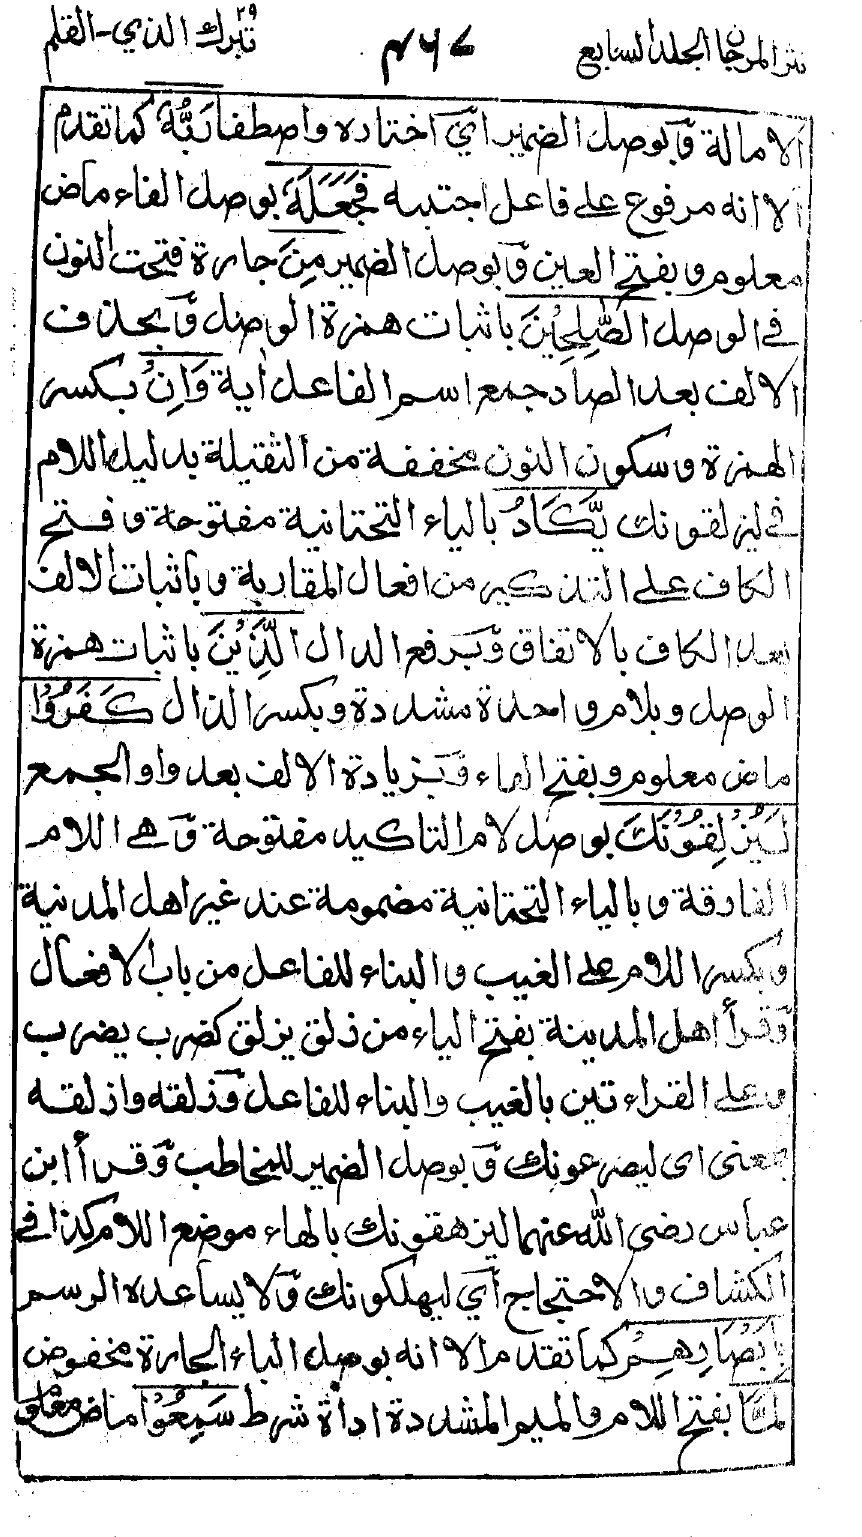 نثر المرجان الجلد السابع ٤٦٧ تبرك الذي ٢٩ - القلم
الامالة وَبوصل الضمير اَي اختاره واصطفاه رَبُّهٗ كما تقدم
الا انه مرفوع على فاعل اجتبيه فَجَعَلَهٗ بوصل الفاء ماض
معلوم و بفتح العين وَبوصل الضمير مِنَ جارة فتحت النون
في الوصل الصّٰلِحِيْنَ باثبات همزة الوصل وَبحذف
الالف بعد الصاد جمع اسم الفاعل اٰية وَاِنْ بكسر
الهمزة وسكون النون مخففة من الثقيلة بدليل اللام
في ليزلقونك يَّكَادُ بالياء التحتانية مفتوحة و فتح
الكاف على التذكير من افعال المقاربة و باثبات الالف
بعد الكاف بالاتفاق وَبرفع الدال الَّذِيْنَ باثبات همزة
الوصل و بلام واحدة مشددة و بكسر الذال كَفَرُوْا
ماض معلوم و بفتح الفاء وَبزيادة الالف بعد واو الجمع
لَيُزْلِقُوْنَكَ بوصل لام التاكيد مفتوحة وَهي اللام
الفارقة و بالياء التحتانية مضمومة عند غير اهل المدنية
و بكسر اللام على الغيب والبناء للفاعل من باب الافعال
وَقرأ اهل المدينة بفتح الياء من زلق يزلق كضرب يضرب
وعلى القراءتين بالغيب والبناء للفاعل وَزلقه وازلقه
بمعنى اى ليصرعونك وَبوصل الضمير للمخاطب وَقرأ ابن
عباس رضى الله عنهما ليزهقونك بالهاء موضع اللام كذا في
الكشاف والاحتجاج اَي ليهلكونك وَلا يساعده الرسم
بِاَبْصَارِهِمْ كما تقدم الا انه بوصل الباء الجارة مخفوض
لَمَّا بفتح اللام والميم المشددة اداة شرط سَمِعُوْا ماض معلوم